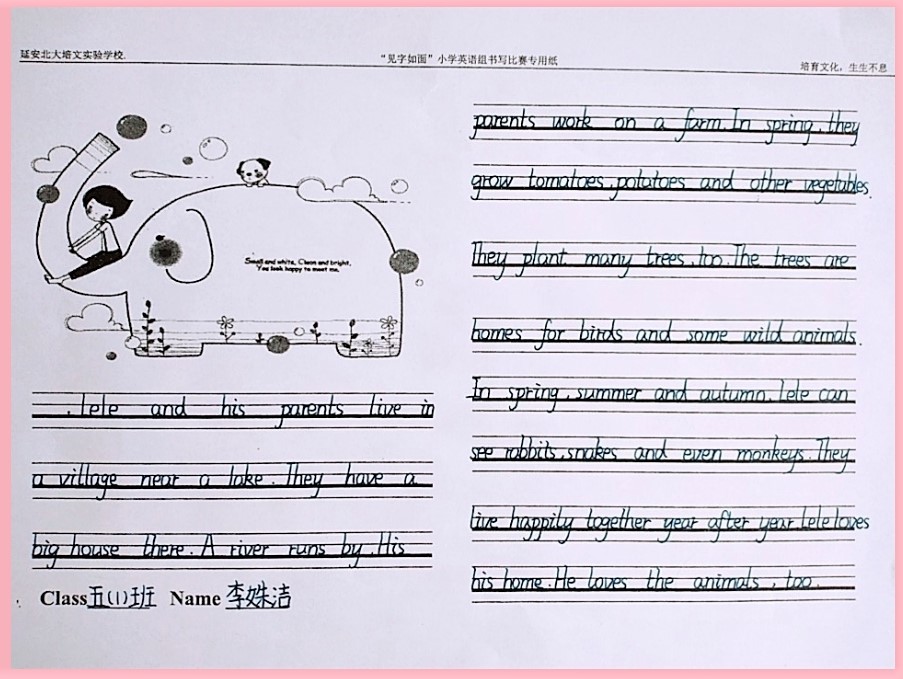 延安北大培文实验学校.
“见字如面”小学英语组书写比赛专用纸
培育文化，生生不息
Small and white, Clean and bright,
You look happy to meet me.
. lele and his parents live in
a village near a lake. They have a
big house there. A river runs by. His
Class五(1)班 Name 李姝洁
parents work on a farm. In spring, they
grow tomatoes, potatoes and other vegetables.
They plant many trees, too. The trees are
homes for birds and some wild animals.
In spring, summer and autumn, lele can
see rabbits, snakes and even monkeys. They
live happily together year after year. Lele loves
his home. He loves the animals, too.